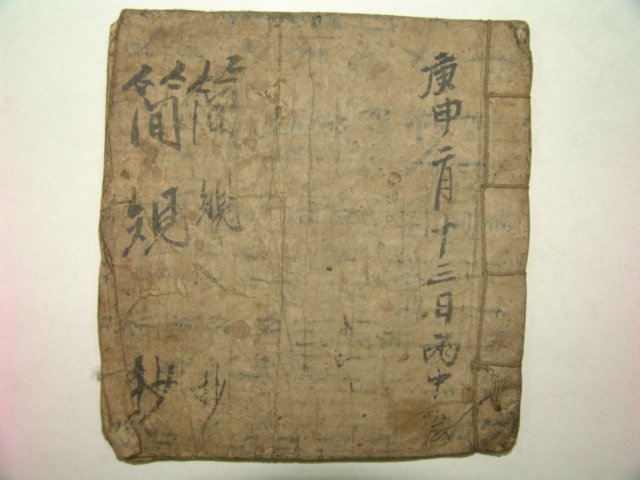 庚申二月十三日雨中
簡規抄
簡規抄